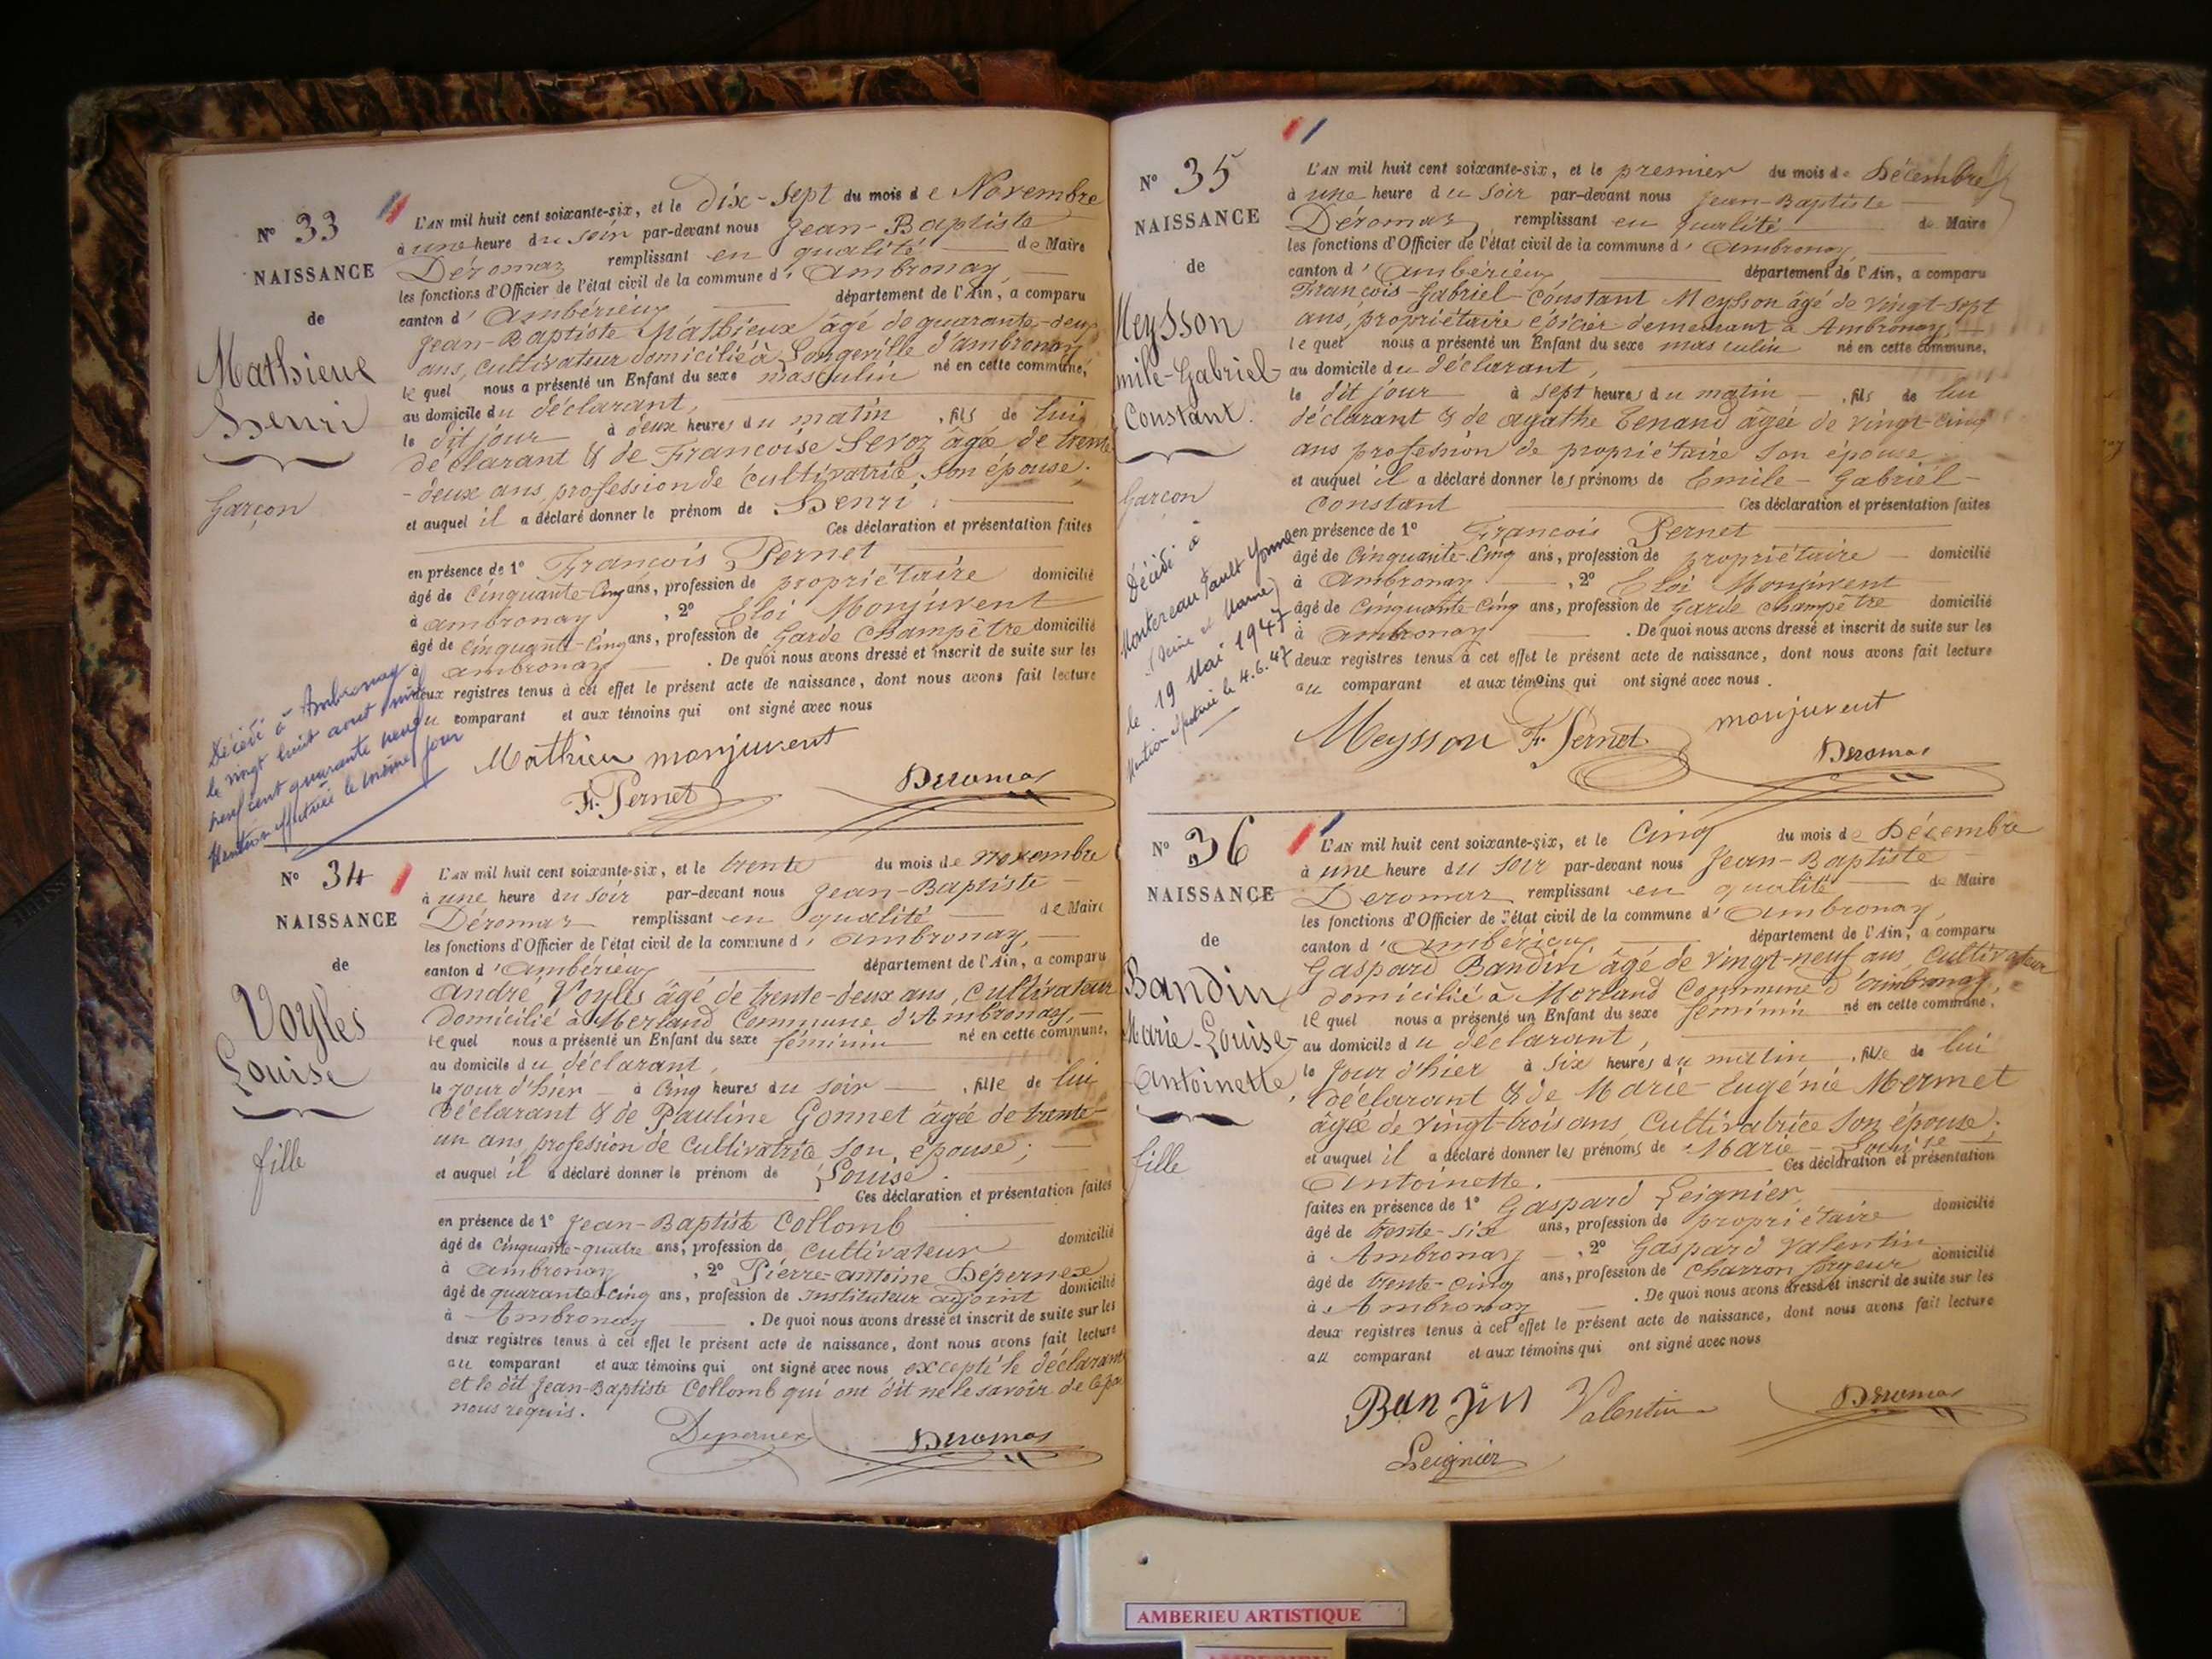 N° 33
NAISSANCE
de
Mathieux
Henri
Garçon
L'AN mil huit cent soixante-six, et le Dix-Sept du mois de Novembre
à une heure du soir par-devant nous Jean-Baptiste
Déromas remplissant en qualité de Maire
les fonctions d'Officier de l'état civil de la commune d'Ambronay,
canton d'Ambérieux département de l'Ain, a comparu
Jean-Baptiste Mathieux âgé de quarante-deux
ans, cultivateur domicilié à Longeville d'ambronay
lequel nous a présenté un Enfant du sexe masculin né en cette commune,
au domicile du déclarant,
le dit jour à deux heures du matin, fils de lui
déclarant & de Françoise Sevoz âgée de trente
-deux ans, profession de cultivatrice son épouse;
et auquel il a déclaré donner le prénom de Henri.
Ces déclaration et présentation faites
en présence de 1° François Pernet
âgé de Cinquante-Cinq ans, profession de propriétaire domicilié
à ambronay, 2° Eloi Monjuvent
âgé de cinquante-Cinq ans, profession de Garde Champêtre domicilié
à ambronay. De quoi nous avons dressé et inscrit de suite sur les
deux registres tenus à cet effet le présent acte de naissance, dont nous avons fait lecture
au comparant et aux témoins qui ont signé avec nous
Décédé à Ambronay
le vingt huit aout mil
neuf cent quarante neuf
Mention effectuée le même jour
Mathieu monjuvent
F. Pernet Deromas
N° 34
NAISSANCE
de
Voyles
Louise
fille
L'AN mil huit cent soixante-six, et le trente du mois de novembre
à une heure du soir par-devant nous Jean-Baptiste
Déromas remplissant en qualité de Maire
les fonctions d'Officier de l'état civil de la commune d'ambronay,
canton d'Ambérieux département de l'Ain, a comparu
André Voyles âgé de trente-deux ans, cultivateur
domicilié à Merland Commune d'Ambronay,
lequel nous a présenté un Enfant du sexe féminin né en cette commune,
au domicile du déclarant,
le jour d'hier à Cinq heures du soir, fille de lui
déclarant & de Pauline Gonnet âgée de trente-
un ans profession de Cultivatrice son épouse;
et auquel il a déclaré donner le prénom de Louise.
Ces déclaration et présentation faites
en présence de 1° Jean-Baptiste Collomb
âgé de Cinquante-quatre ans, profession de cultivateur domicilié
à ambronay, 2° Pierre-antoine Dépernex
âgé de quarante-cinq ans, profession de Instituteur adjoint domicilié
à Ambronay. De quoi nous avons dressé et inscrit de suite sur les
deux registres tenus à cet effet le présent acte de naissance, dont nous avons fait lecture
au comparant et aux témoins qui ont signé avec nous excepté le déclarant
et le dit Jean-Baptiste Collomb qui ont dit ne le savoir de ce par
nous requis.
Depernex Deromas
N° 35
NAISSANCE
de
Meysson
mile-Gabriel-
Constant.
Garçon
L'AN mil huit cent soixante-six, et le premier du mois de Décembre
à une heure du soir par-devant nous Jean-Baptiste
Déromas remplissant en qualité de Maire
les fonctions d'Officier de l'état civil de la commune d'Ambronay
canton d'Ambérieux département de l'Ain, a comparu
François-Gabriel-Constant Meysson âgé de vingt-sept
ans, propriétaire épicier demeurant à Ambronay,
lequel nous a présenté un Enfant du sexe masculin né en cette commune,
au domicile du déclarant,
le dit jour à sept heures du matin, fils de lui
déclarant & de agathe Tenand âgée de vingt-cinq
ans profession de propriétaire son épouse
et auquel il a déclaré donner les prénoms de Emile-Gabriel-
Constant Ces déclaration et présentation faites
en présence de 1° François Pernet
âgé de Cinquante-Cinq ans, profession de propriétaire domicilié
à ambronay, 2° Eloi Monjuvent
âgé de Cinquante-Cinq ans, profession de Garde Champêtre domicilié
à ambronay. De quoi nous avons dressé et inscrit de suite sur les
deux registres tenus à cet effet le présent acte de naissance, dont nous avons fait lecture
au comparant et aux témoins qui ont signé avec nous.
Décédé à
Montereau Fault Yonne
(Seine et Marne)
le 19 Mai 1947
Mention effectuée le 4.6.47
Meysson F. Pernet monjuvent
Deromas
N° 36
NAISSANCE
de
Bandin
Marie-Louise-
Antoinette,
fille
L'AN mil huit cent soixante-six, et le Cinq du mois de Décembre
à une heure du soir par-devant nous Jean-Baptiste
Deromas remplissant en qualité de Maire
les fonctions d'Officier de l'état civil de la commune d'Ambronay,
canton d'Ambérieux département de l'Ain, a comparu
Gaspard Bandin âgé de vingt-neuf ans, Cultivateur
domicilié à Merland Commune d'Ambronay,
lequel nous a présenté un Enfant du sexe féminin né en cette commune,
au domicile du déclarant,
le jour d'hier à six heures du matin, fille de lui
déclarant & de Marie-Eugénie Mermet
âgée de vingt-trois ans, Cultivatrice son épouse;
et auquel il a déclaré donner les prénoms de Marie-Louise
Antoinette. Ces déclaration et présentation
faites en présence de 1° Gaspard Leignier,
âgé de trente-six ans, profession de propriétaire domicilié
à Ambronay, 2° Gaspard Valentin
âgé de trente-cinq ans, profession de Charron forgeur domicilié
à Ambronay. De quoi nous avons dressé et inscrit de suite sur les
deux registres tenus à cet effet le présent acte de naissance, dont nous avons fait lecture
au comparant et aux témoins qui ont signé avec nous
Bandin Valentin Deromas
Leignier
AMBERIEU ARTISTIQUE
AMBERIEU